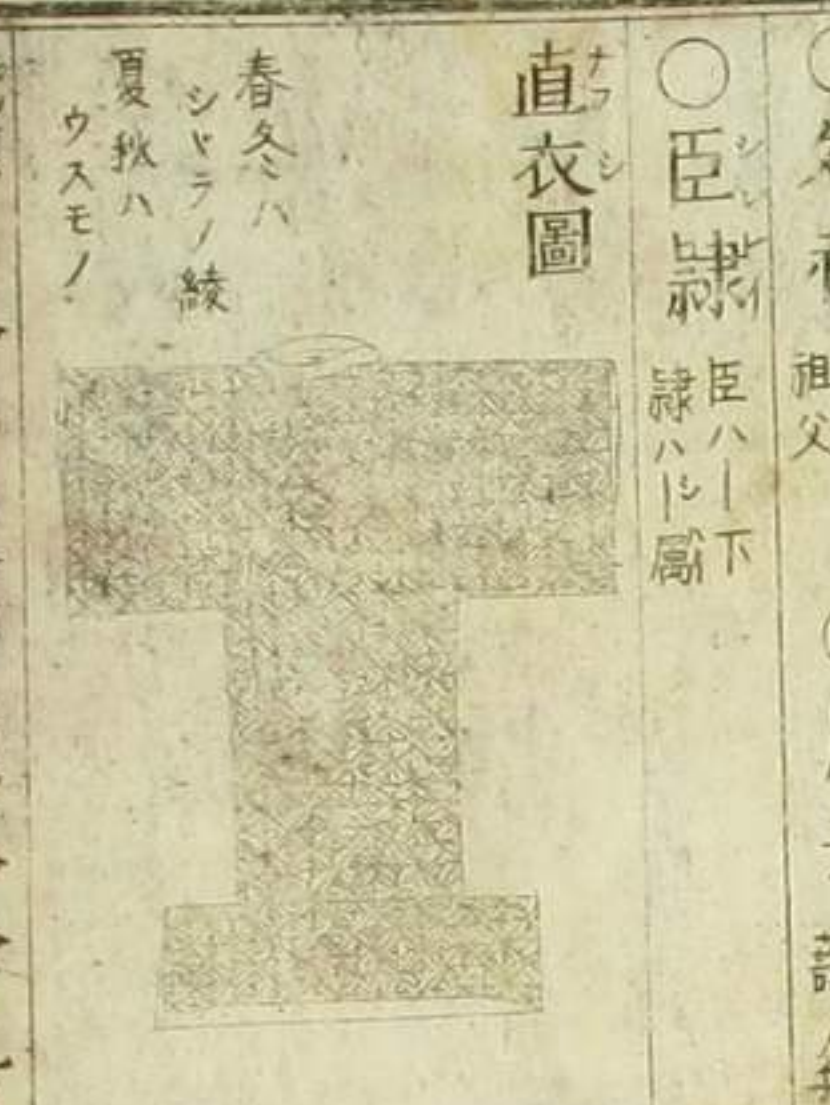 祖父
○臣隷
シンレイ
臣ハ一下
隷ハ一シ属
直衣圖
ナフシ
春冬ハ
シヤラノ綾
夏秋ハ
ウスモノ